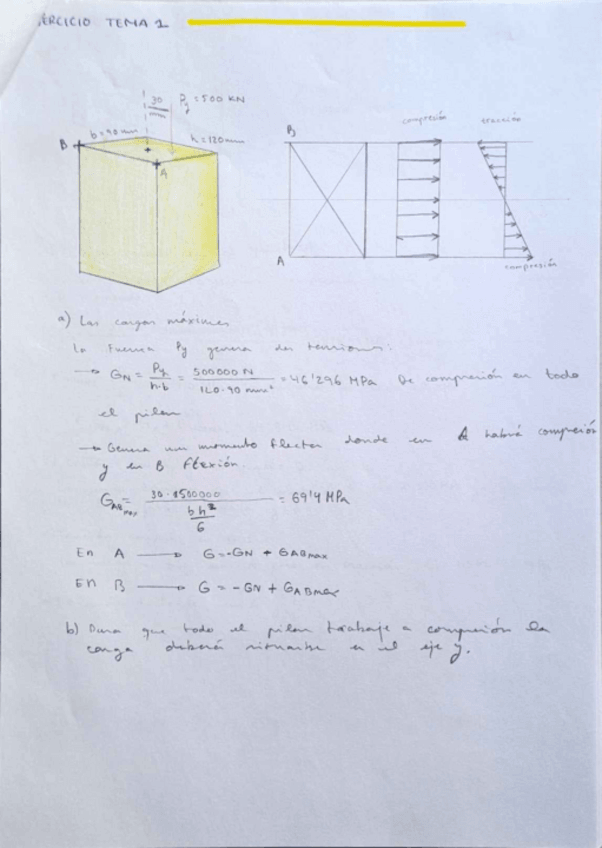 EJERCICIO TEMA 1
30 mm
Py = 500 KN
b = 90mm
h = 120mm
B
A
compresión
tracción
B
A
compresión
a) Las cargas máximas
La fuerza Py genera dos tensiones:
→ GN = Py / h·b = 500000 N / 120·90 mm² = 46'296 MPa De compresión en todo
el pilar
→ Genera un momento flector donde en A habrá compresión
y en B flexión.
GAB max = 30·500000 / (b h² / 6) = 69'4 MPa
En A → G = -GN + GABmax
En B → G = -GN + GABmax
b) Para que todo el pilar trabaje a compresión la
carga deberá situarse en el eje y.